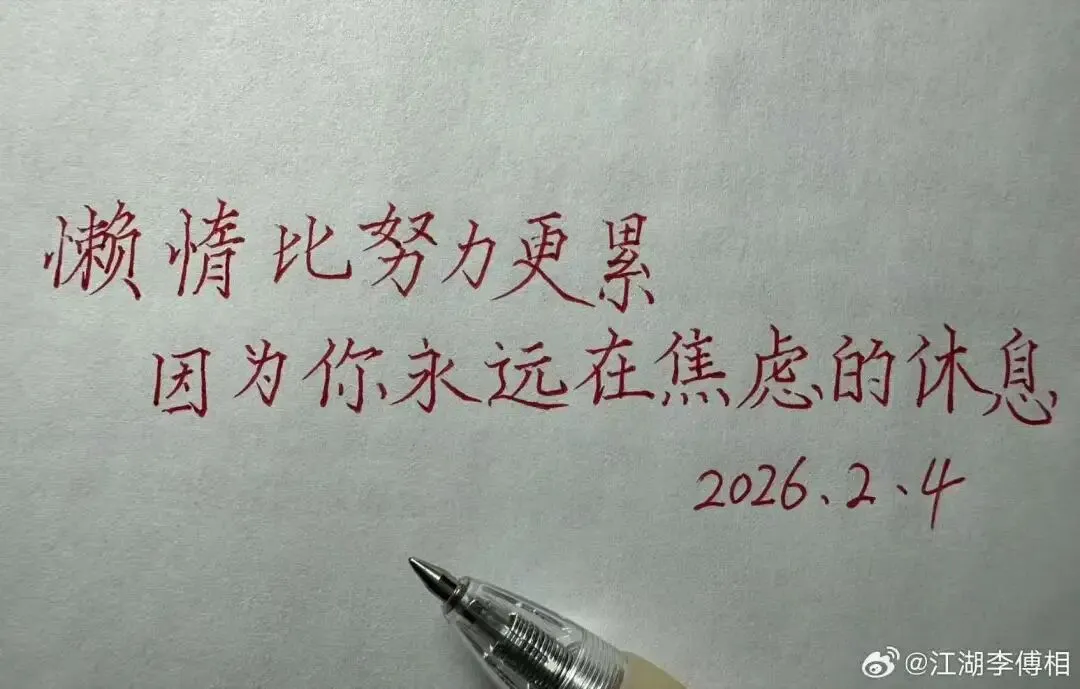 懒惰比努力更累
因为你永远在焦虑的休息
2026、2、4
@江湖李傅相